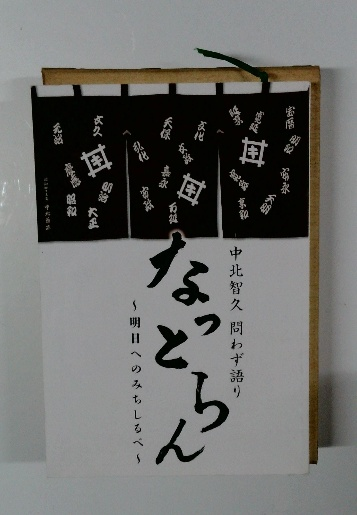 宝暦
明和
安永
天明
寛延
文化
天保
弘化
嘉永
万延
文久
元治
明治
大正
昭和
中北智久 問わず語り
なっとらん
～明日へのみちしるべ～